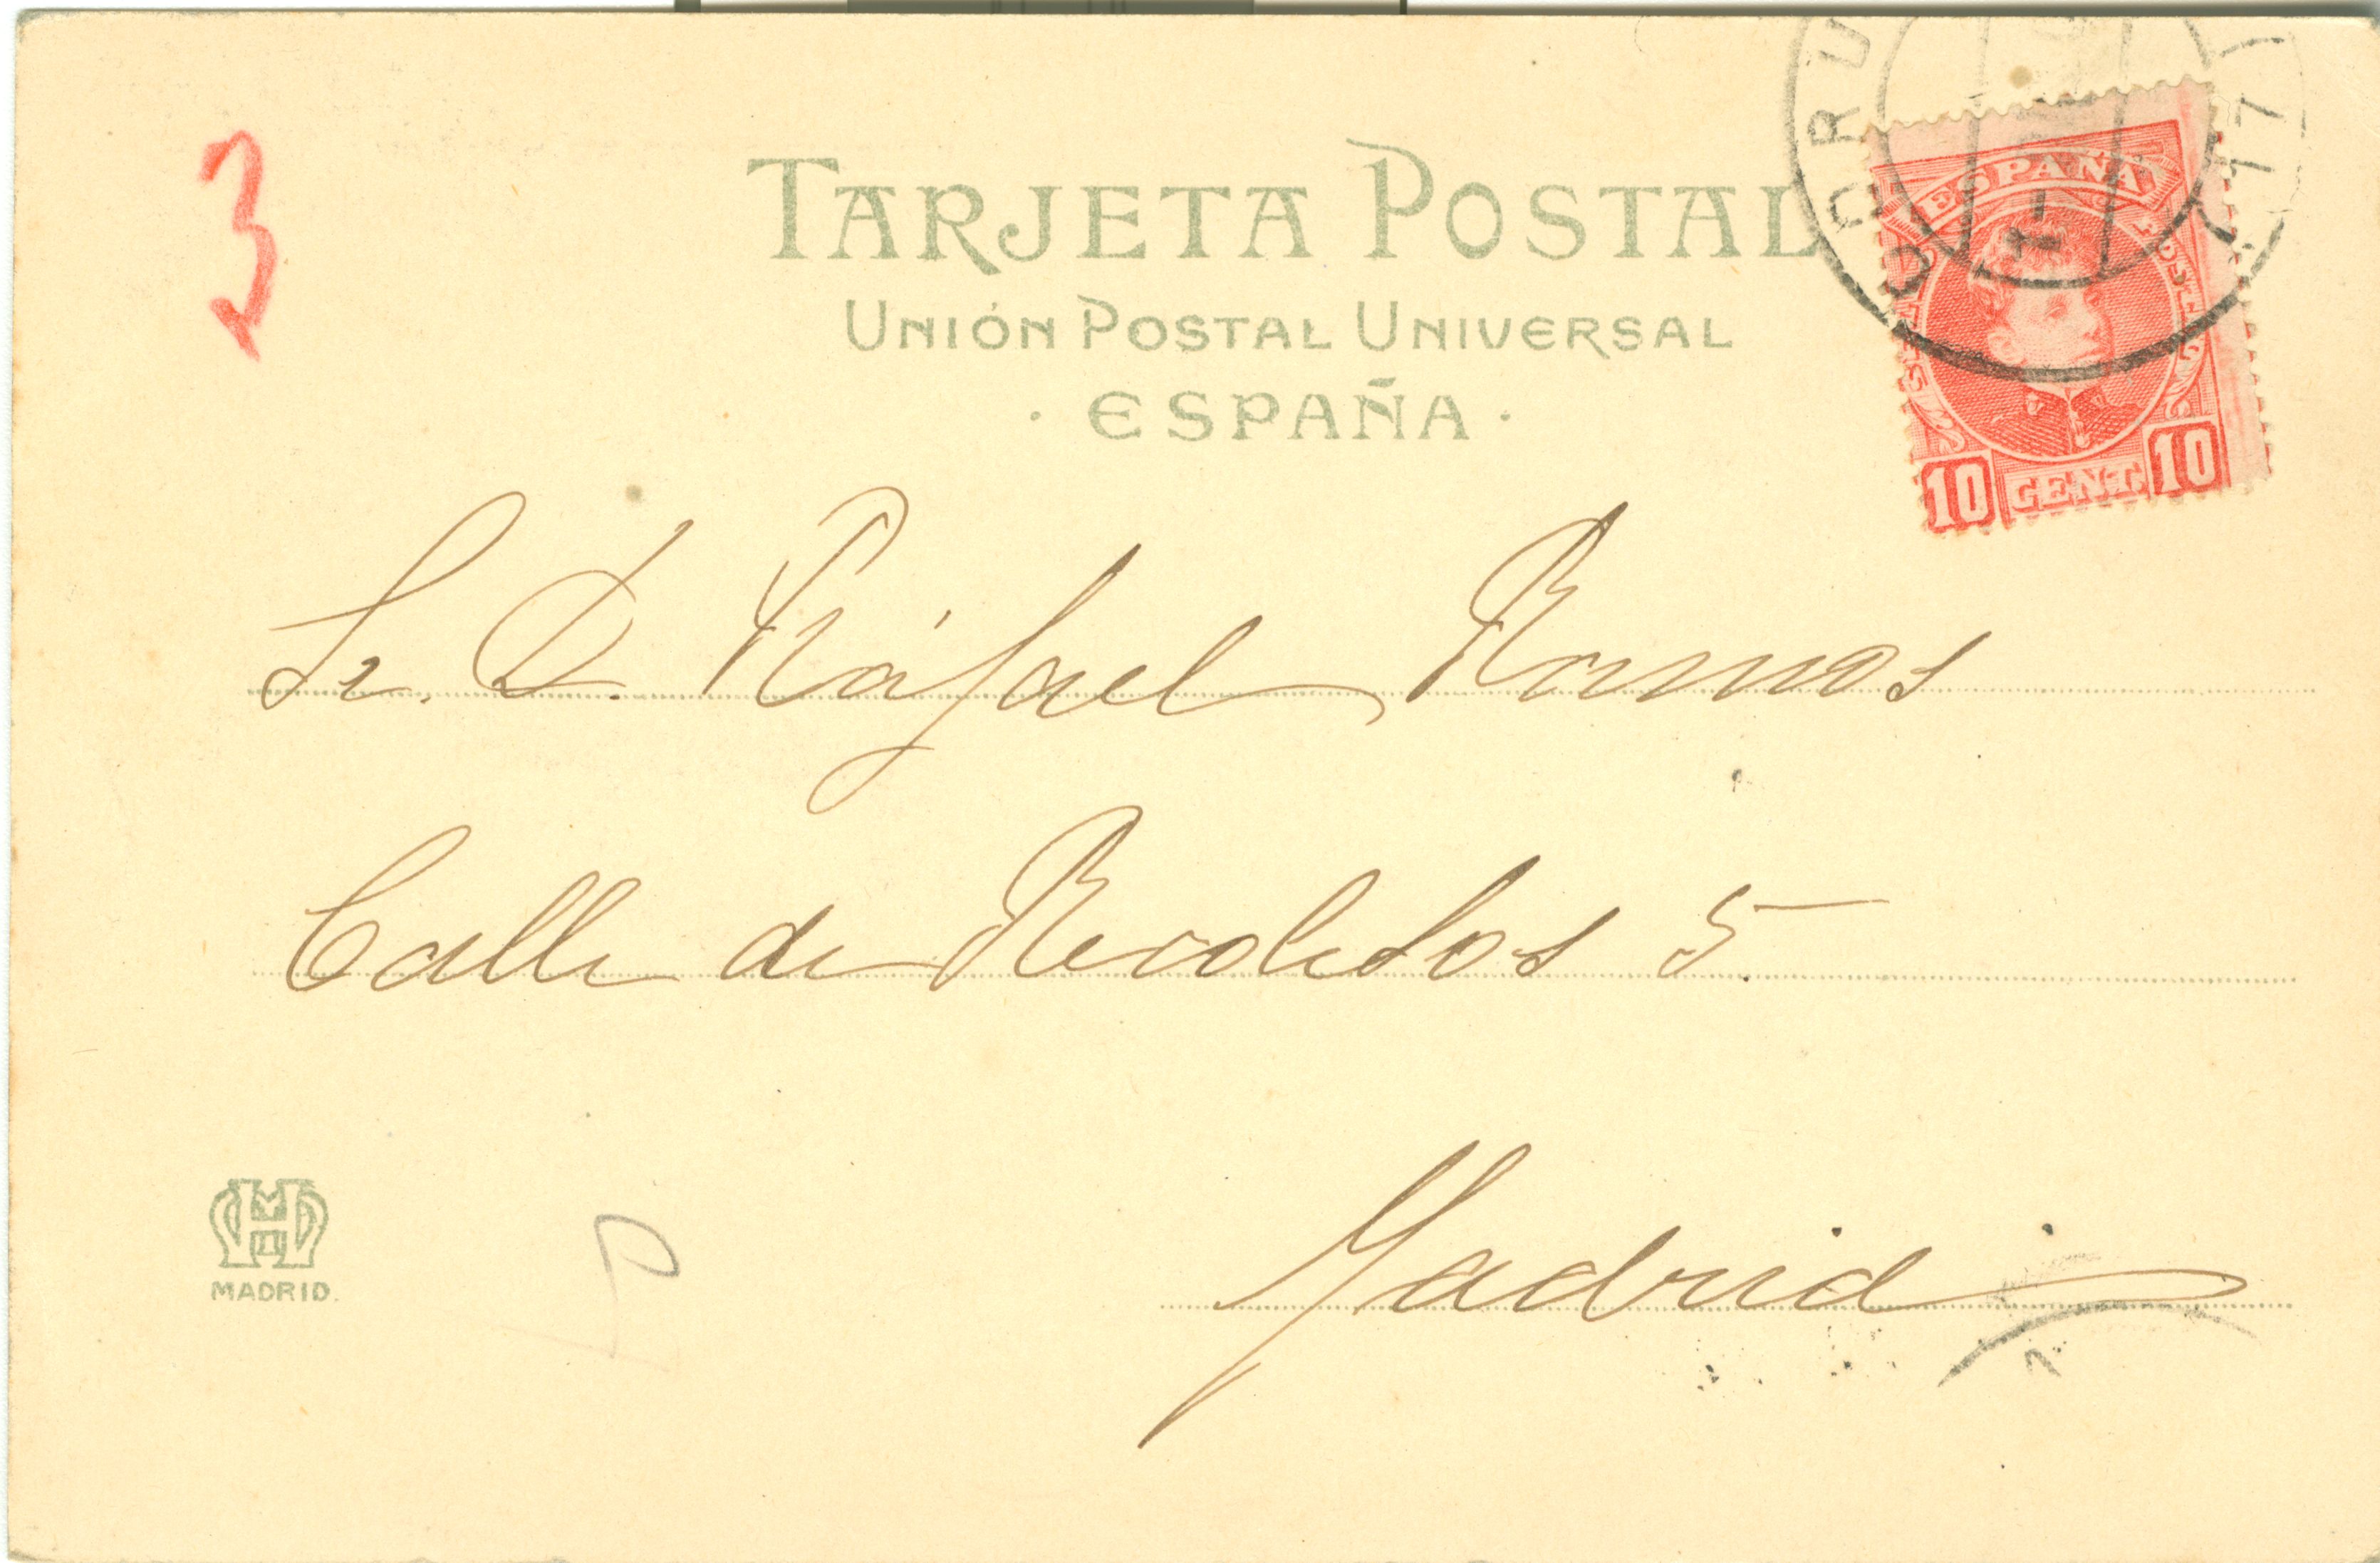 3
TARJETA POSTAL
UNIÓN POSTAL UNIVERSAL
· ESPAÑA ·
CORU
ESPAÑA
10 CENT. 10
Sr. D. Ráfael Ramos
Calle de Recoletos 5.
Madrid
MADRID.